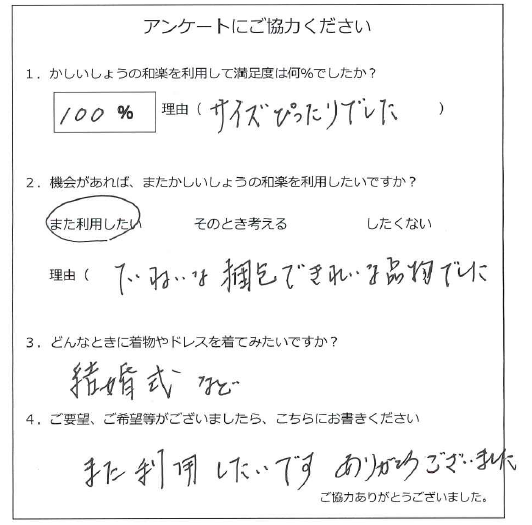 アンケートにご協力ください
1．かしいしょうの和楽を利用して満足度は何%でしたか？
100 % 理由（ サイズぴったりでした ）
2．機会があれば、またかしいしょうの和楽を利用したいですか？
また利用したい そのとき考える したくない
理由（ ていねいな梱包できれいな品物でした
3．どんなときに着物やドレスを着てみたいですか？
結婚式 など
4．ご要望、ご希望等がございましたら、こちらにお書きください
また利用したいです ありがとうございました
ご協力ありがとうございました。